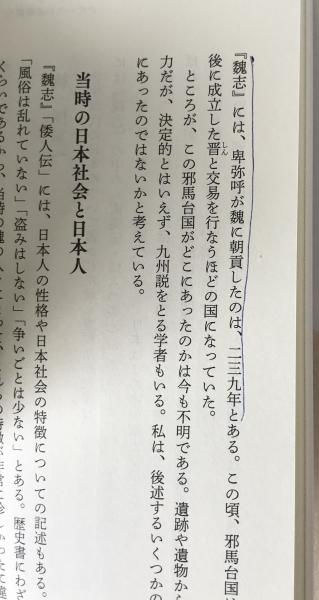 『魏志』には、卑弥呼が魏に朝貢したのは、二三九年とある。この頃、邪馬台国
後に成立した晋と交易を行なうほどの国になっていた。
しん
ところが、この邪馬台国がどこにあったのかは今も不明である。遺跡や遺物から
力だが、決定的とはいえず、九州説をとる学者もいる。私は、後述するいくつかの
にあったのではないかと考えている。
当時の日本社会と日本人
『魏志』「倭人伝」には、日本人の性格や日本社会の特徴についての記述もある。
「風俗は乱れていない」「盗みはしない」「争いごとは少ない」とある。歴史書にわざ
くらいであるから、当時の魏の人